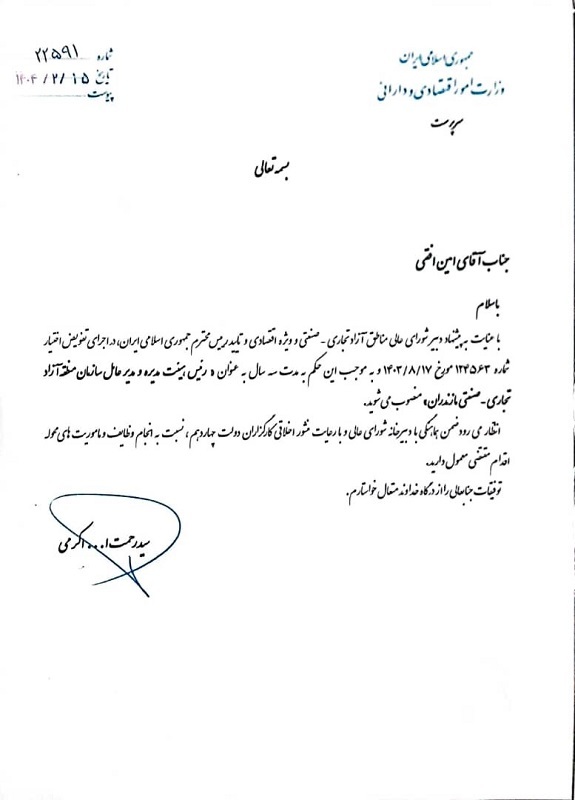 جمهوری اسلامی ایران
وزارت امور اقتصادی و دارائی
سرپرست
شماره ۲۲۵۹۱
تاریخ ۱۴۰۴/۲/۱۵
پیوست
بسمه تعالی
جناب آقای امین افقی
با سلام
با عنایت به پیشنهاد دبیر شورای عالی مناطق آزاد تجاری - صنعتی و ویژه اقتصادی و تایید رییس محترم جمهوری اسلامی ایران، در اجرای تفویض اختیار
شماره ۱۲۴۵۶۳ مورخ ۱۴۰۳/۸/۱۷ و به موجب این حکم به مدت سه سال به عنوان « رئیس هیئت مدیره و مدیر عامل سازمان منطقه آزاد
تجاری - صنعتی مازندران» منصوب می شوید.
انتظار می رود ضمن هماهنگی با دبیرخانه شورای عالی و با رعایت منشور اخلاقی کارگزاران دولت چهاردهم ، نسبت به انجام وظایف و ماموریت های محوله
اقدام مقتضی معمول دارید.
توفیقات جنابعالی را از درگاه خداوند متعال خواستارم.
سید رحمت ا... اکرمی